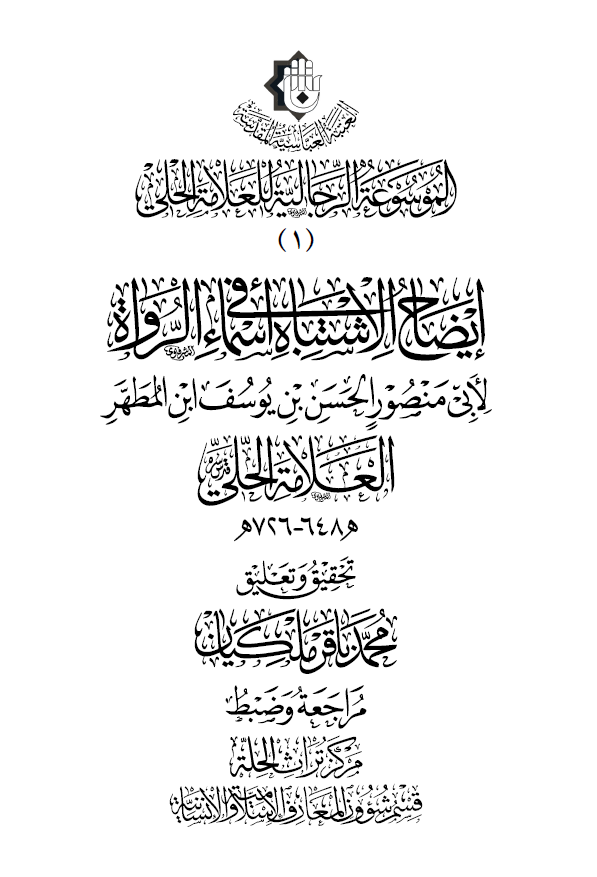 العتبة العباسية المقدسة
المُوْسُوْعَةُ الرِّجَاليَّةُ لِلعَلامَةِ الحِلّي
(١)
إيضَاحُ الاِشْتِبَاهِ فِي أَسْمَاءِ الرُّوَاةِ
لِأَبِيْ مَنْصُوْرٍ الحَسَنِ بْنِ يُوسُفَ ابْنِ المُطَهَّرِ
العَلامَةِ الحِلّيّ قدس سره
٦٤٨هـ-٧٢٦هـ
تَحْقِيْقُ وَتَعْلِيْق
مُحَمَّد بَاقِر مَلكيَان
مُرَاجَعَةُ وَضَبْطُ
مَرْكَز تُرَاث الحِلَّة
قِسْمُ شُؤُوْنِ المَعَارِفِ الإِسْلَامِيَّةِ وَالإِنْسَانِيَّة